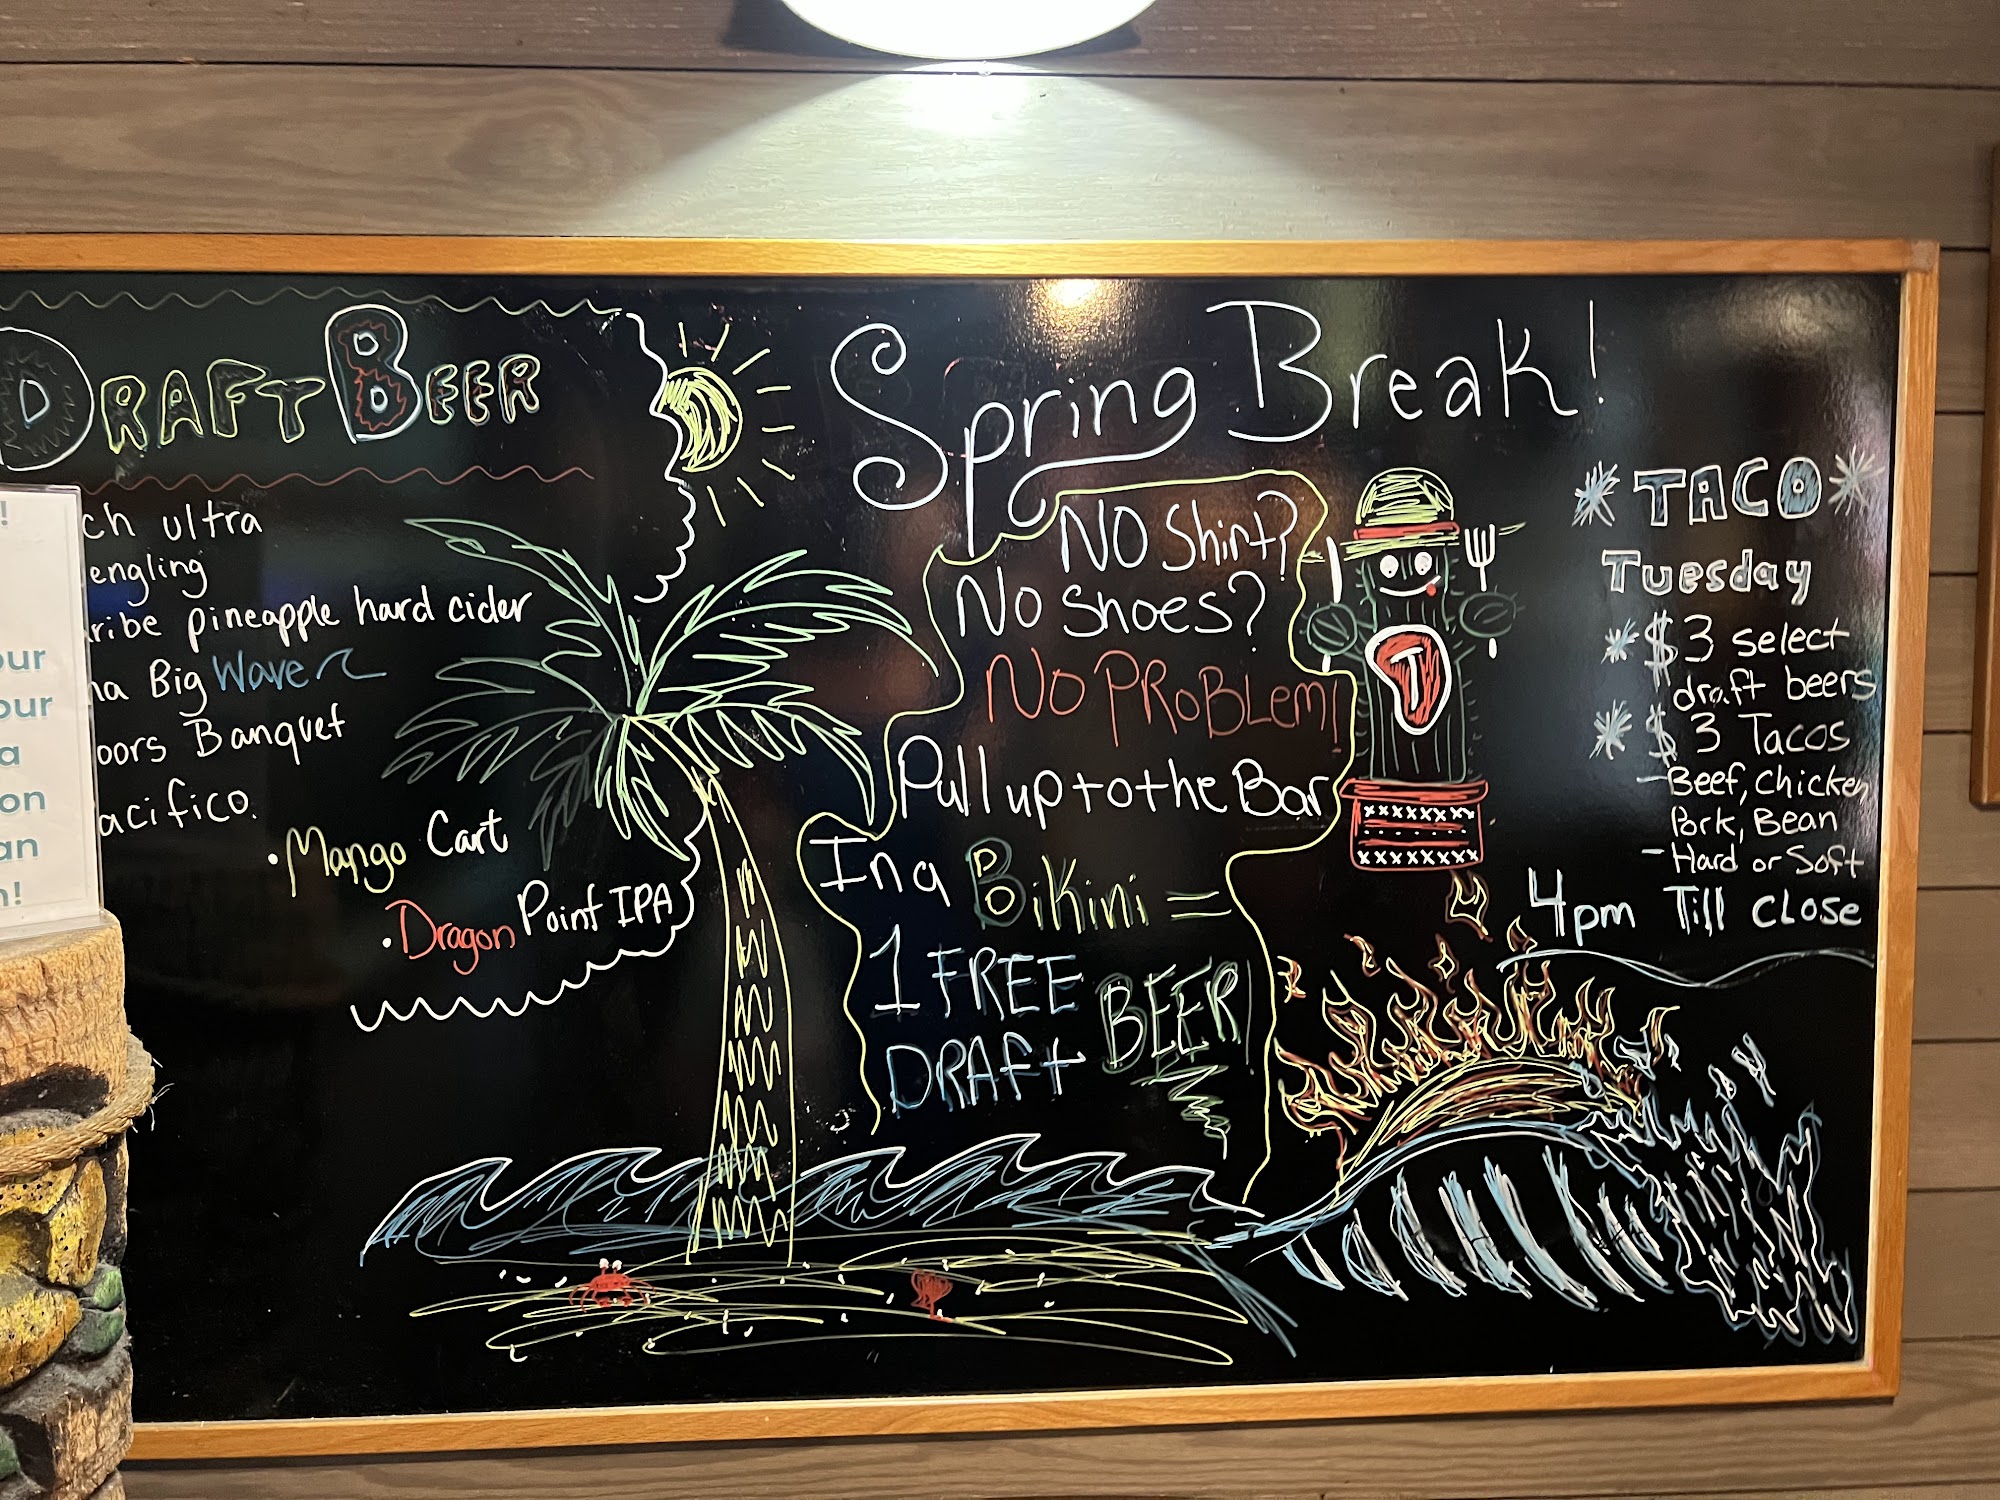 DRAFT BEER
ch ultra
engling
ribe pineapple hard cider
na Big Wave
oors Banquet
acifico.
• Mango Cart
• Dragon Point IPA
Spring Break!
NO Shirt?
No Shoes?
NO PROBLEM!
Pull up to the Bar
In a Bikini =
1 FREE
DRAFT BEER
T
TACO
Tuesday
$3 select
draft beers
$3 Tacos
- Beef, Chicken
Pork, Bean
- Hard or Soft
4pm Till close
!
our
our
a
on
an
!